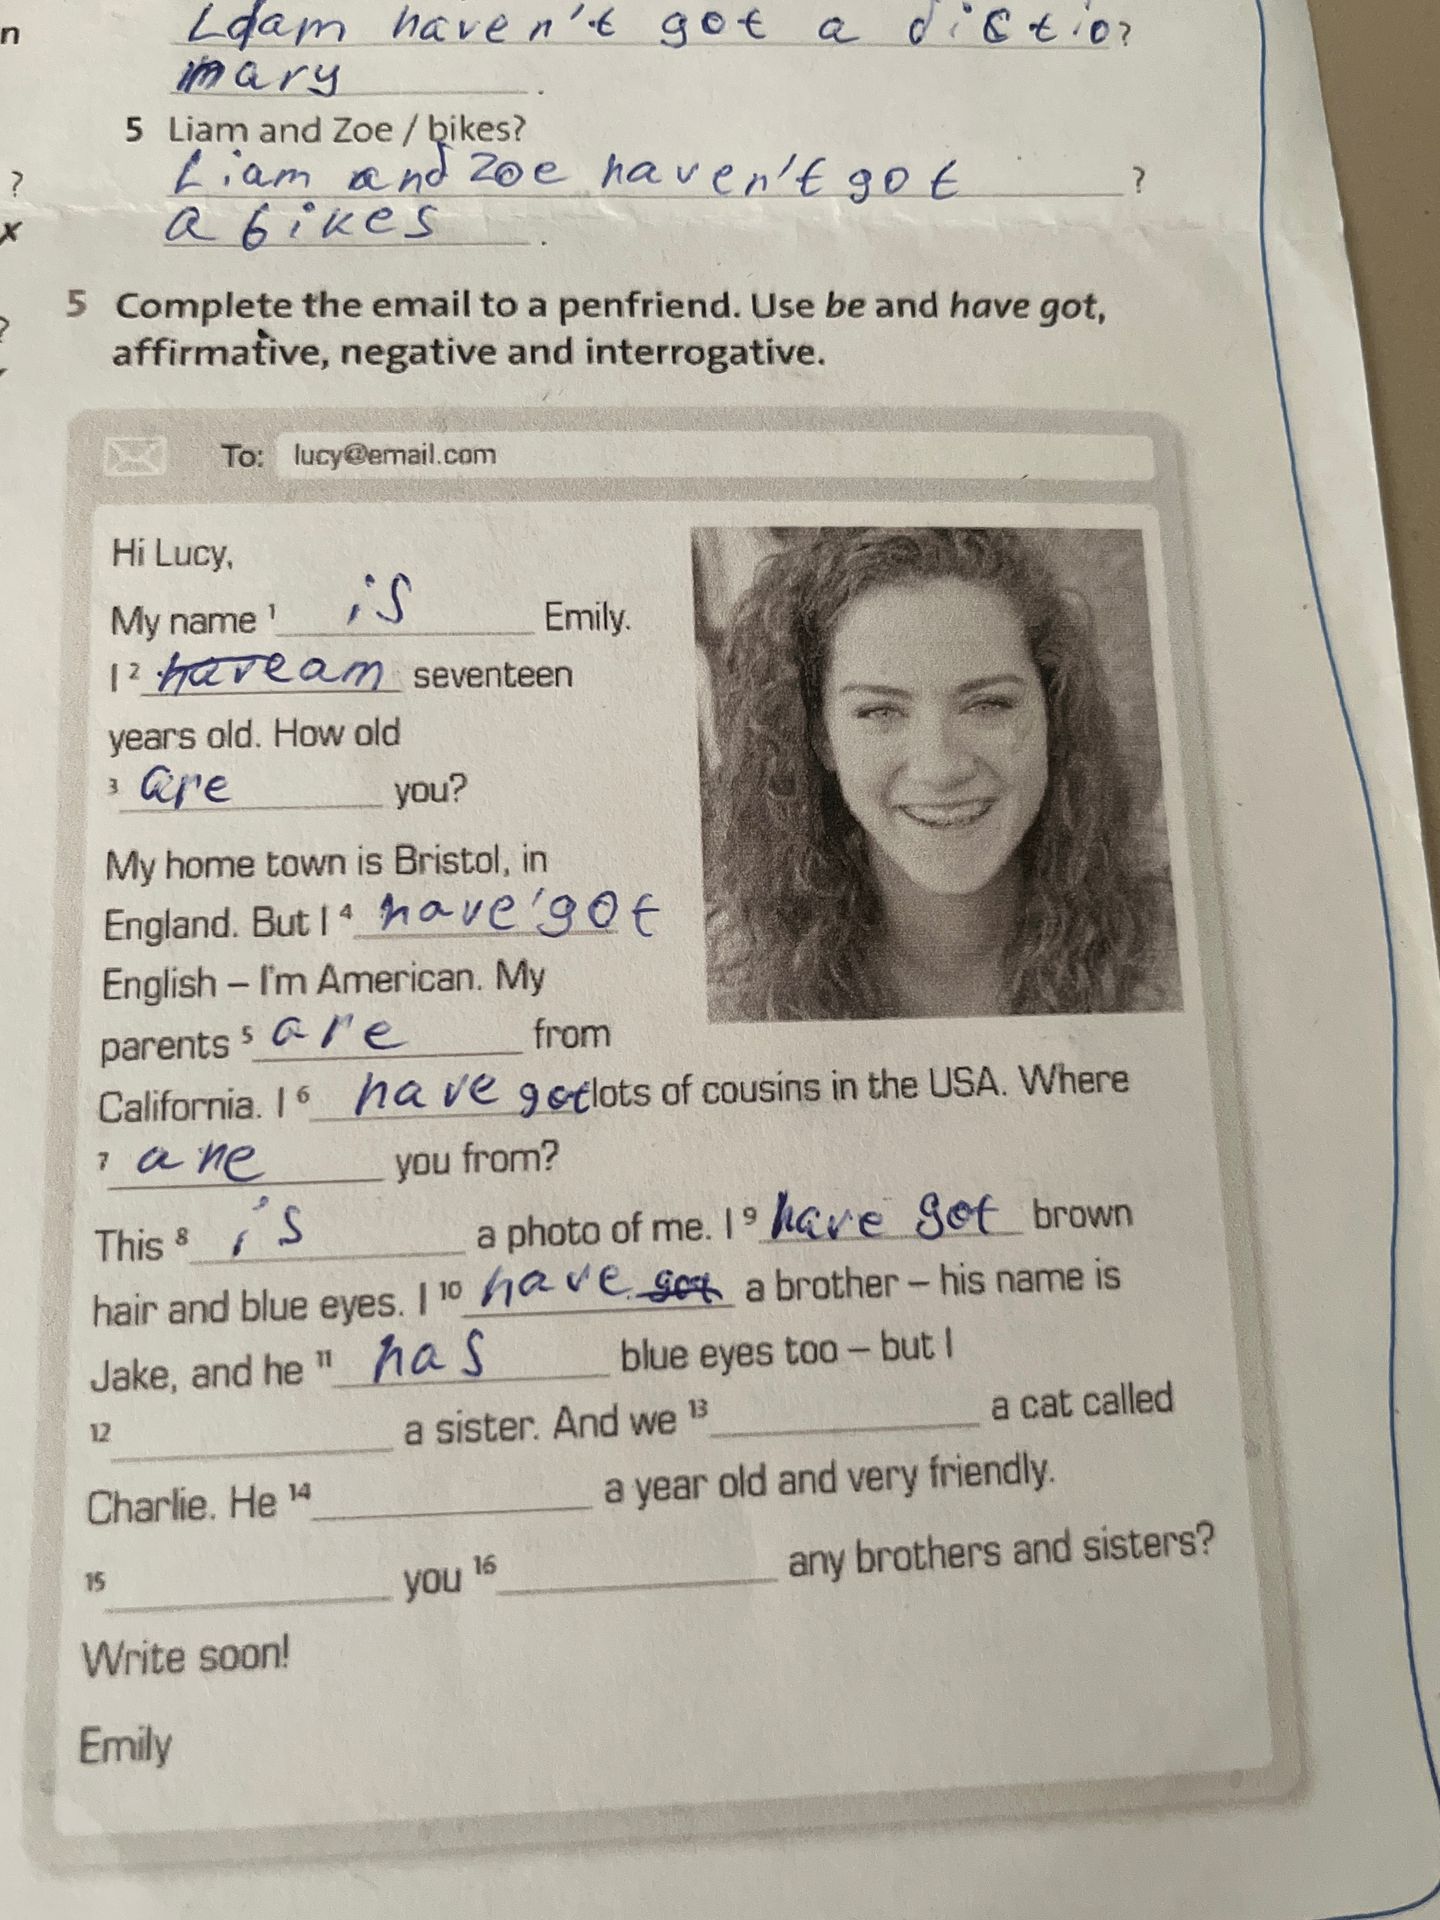 n
Ldam haven't got a dictio?
mary.
5 Liam and Zoe / bikes?
Liam and Zoe haven't got ?
? a bikes.
x
?
5 Complete the email to a penfriend. Use be and have got,
affirmative, negative and interrogative.
To: lucy@email.com
Hi Lucy,
My name 1 is Emily.
I 2 have am seventeen
years old. How old
3 are you?
My home town is Bristol, in
England. But I 4 have'got
English – I'm American. My
parents 5 are from
California. I 6 have got lots of cousins in the USA. Where
7 are you from?
This 8 is a photo of me. I 9 have got brown
hair and blue eyes. I 10 have got a brother – his name is
Jake, and he 11 has blue eyes too – but I
12 a sister. And we 13 a cat called
Charlie. He 14 a year old and very friendly.
15 you 16 any brothers and sisters?
Write soon!
Emily